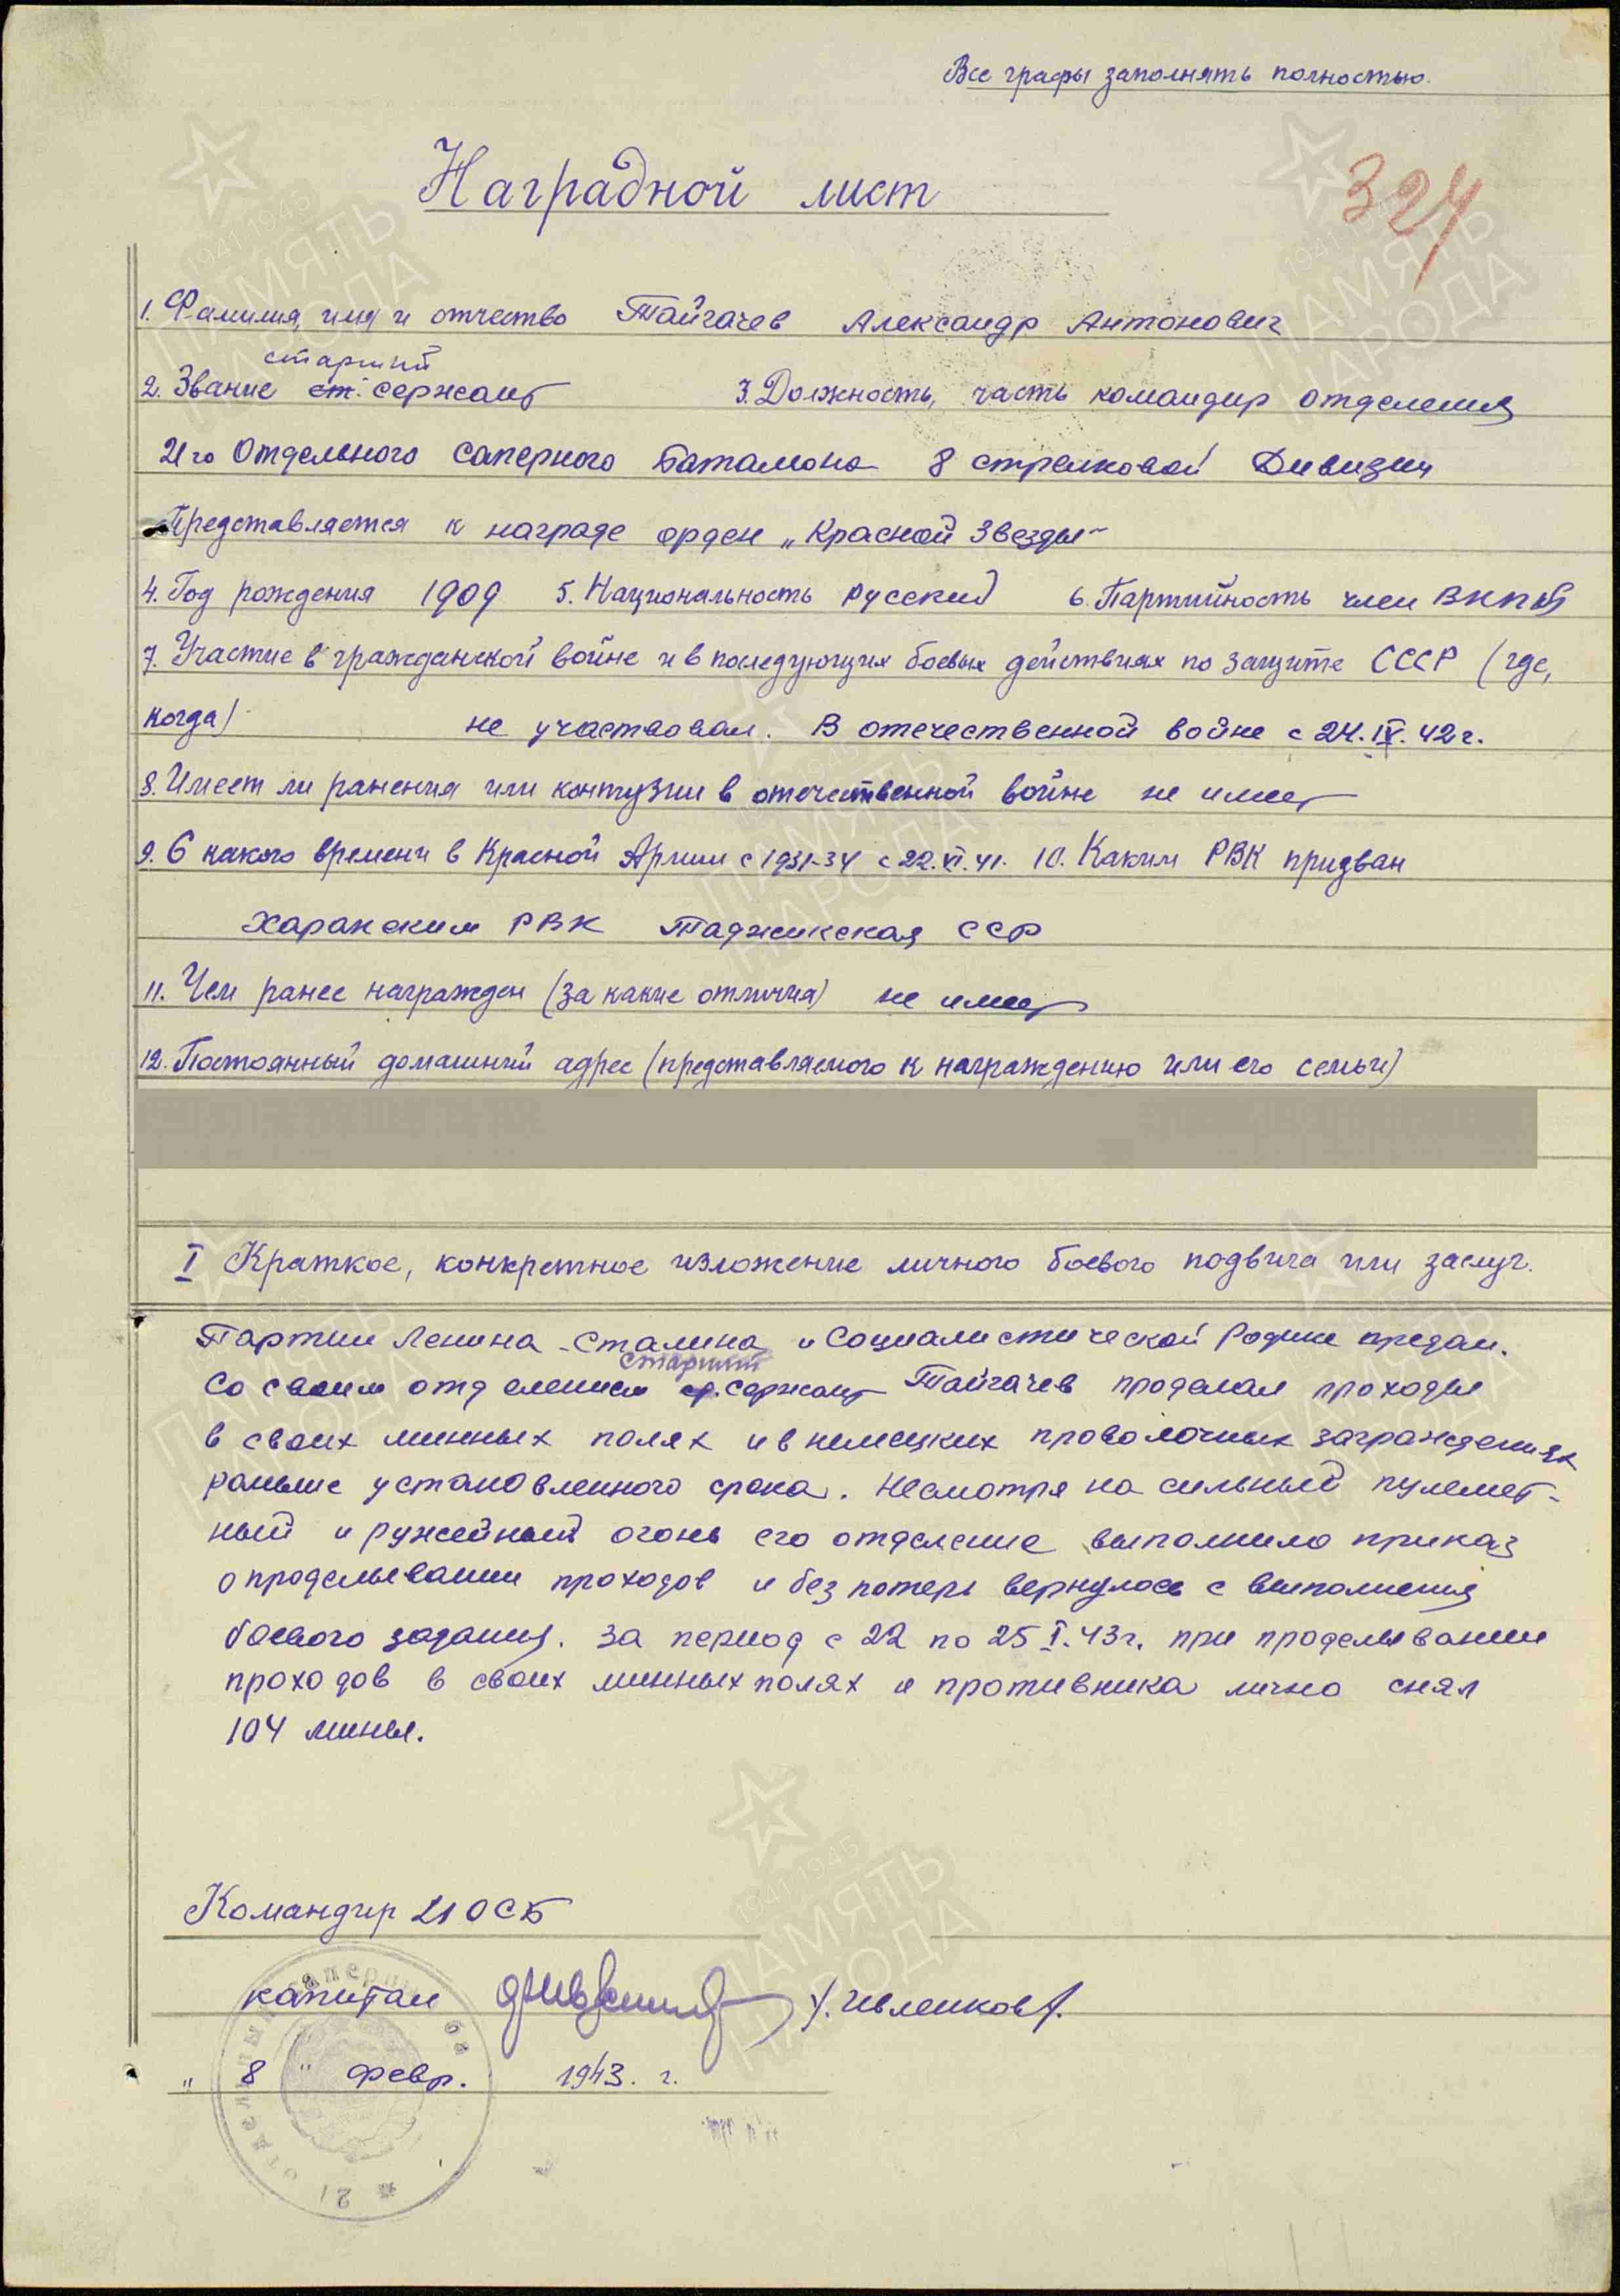 Все графы заполнять полностью.
Наградной лист
324
1. Фамилия, имя и отчество Тайгачев Александр Антонович
старший
2. Звание ст. сержант 3. Должность, часть командир отделения
21го Отдельного саперного батальона 8 стрелковой Дивизии
Представляется к награде орден „Красной Звезды"
4. Год рождения 1909 5. Национальность русский 6. Партийность член ВКП(б)
7. Участие в гражданской войне и в последующих боевых действиях по защите СССР (где,
когда) не участвовал. В отечественной войне с 24.IV.42 г.
8. Имеет ли ранения или контузии в отечественной войне не имеет
9. С какого времени в Красной Армии с 1931-34 с 22.VI.41. 10. Каким РВК призван
РВК Таджикская ССР
11. Чем ранее награжден (за какие отличия) не имеет
12. Постоянный домашний адрес (представляемого к награждению или его семьи)
I Краткое, конкретное изложение личного боевого подвига или заслуг.
Партии Ленина-Сталина и Социалистической Родине предан.
старший
Со своим отделением ст. сержант Тайгачев проделал проходы
в своих минных полях и в немецких проволочных заграждениях
раньше установленного срока. Несмотря на сильный пулемет-
ный и ружейный огонь его отделение выполнило приказ
о проделывании проходов и без потерь вернулось с выполнения
боевого задания. За период с 22 по 25 I.43 г. при проделывании
проходов в своих минных полях и противника лично снял
104 мины.
Командир 21 ОСБ
капитан /. Ивленков /.
„ 8 " февр. 1943. г.
21 отдельный саперный ба
1941 1945
ПАМЯТЬ
НАРОДА